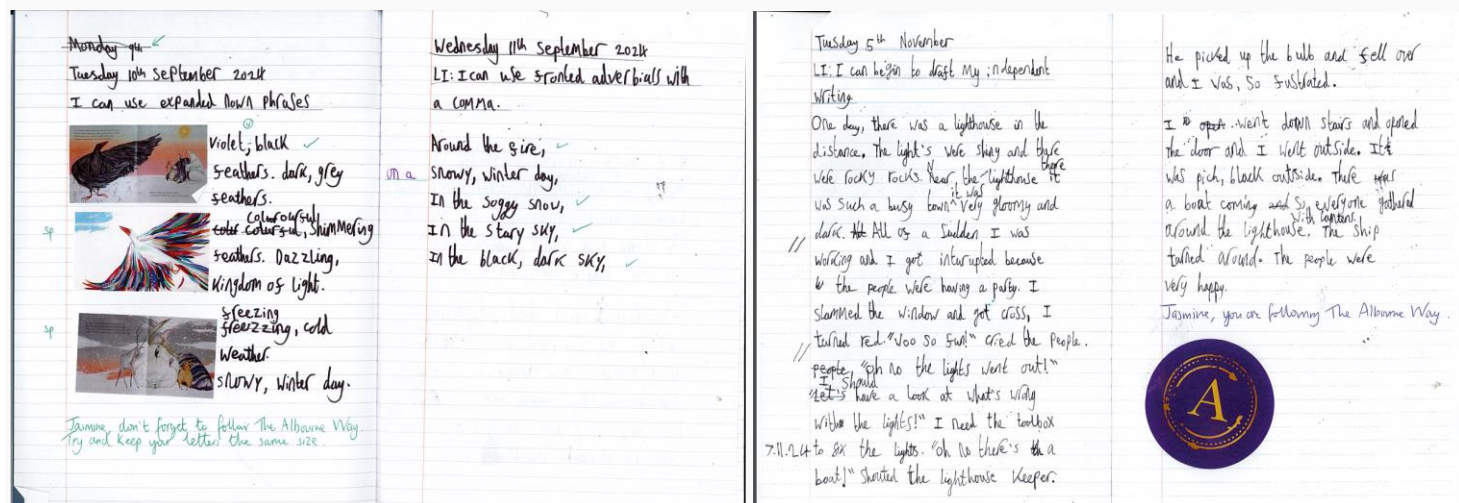 Monday 9th
Tuesday 10th September 2024
I can use expanded nown phrases
Violet, black
feathers. dark, grey
feathers.
sp
Colourful
Colourful, shimmering
feathers. Dazzling,
Kingdom of light.
sp
freezing
freezzing, cold
weather.
snowy, winter day.
Jasmine, don't forget to follow The Albourne Way.
Try and keep your letters the same size.
Wednesday 11th September 2024
LI: I can use fronted adverbials with
a comma.
Around the fire,
on a snowy, winter day,
In the soggy snow,
In the stary sky,
In the black, dark sky,
Tuesday 5th November
LI: I can begin to draft my independent
writing
One day, there was a lighthouse in the
distance. The light's were shiny and there
were rocky rocks. Near the lighthouse there
was such a busy town it was very gloomy and
dark. All of a sudden I was
working and I got inturupted because
the people were having a party. I
slammed the window and got cross, I
turned red. "Woo so fun!" cried the people.
people "oh no the lights went out!"
I should
"Let's have a look at what's wrong
with the lights!" I need the toolbox
7.11.24 to fix the lights. "oh no there's a
boat!" shouted the lighthouse keeper.
He picked up the bulb and fell over
and I was, so fustrated.
I went down stairs and opened
the door and I went outside. It
was pich, black outside. There was
a boat coming so, everyone gathered
around the lighthouse. with lantens. The ship
turned around. The people were
very happy.
Jasmine, you are following The Albourne Way.
A